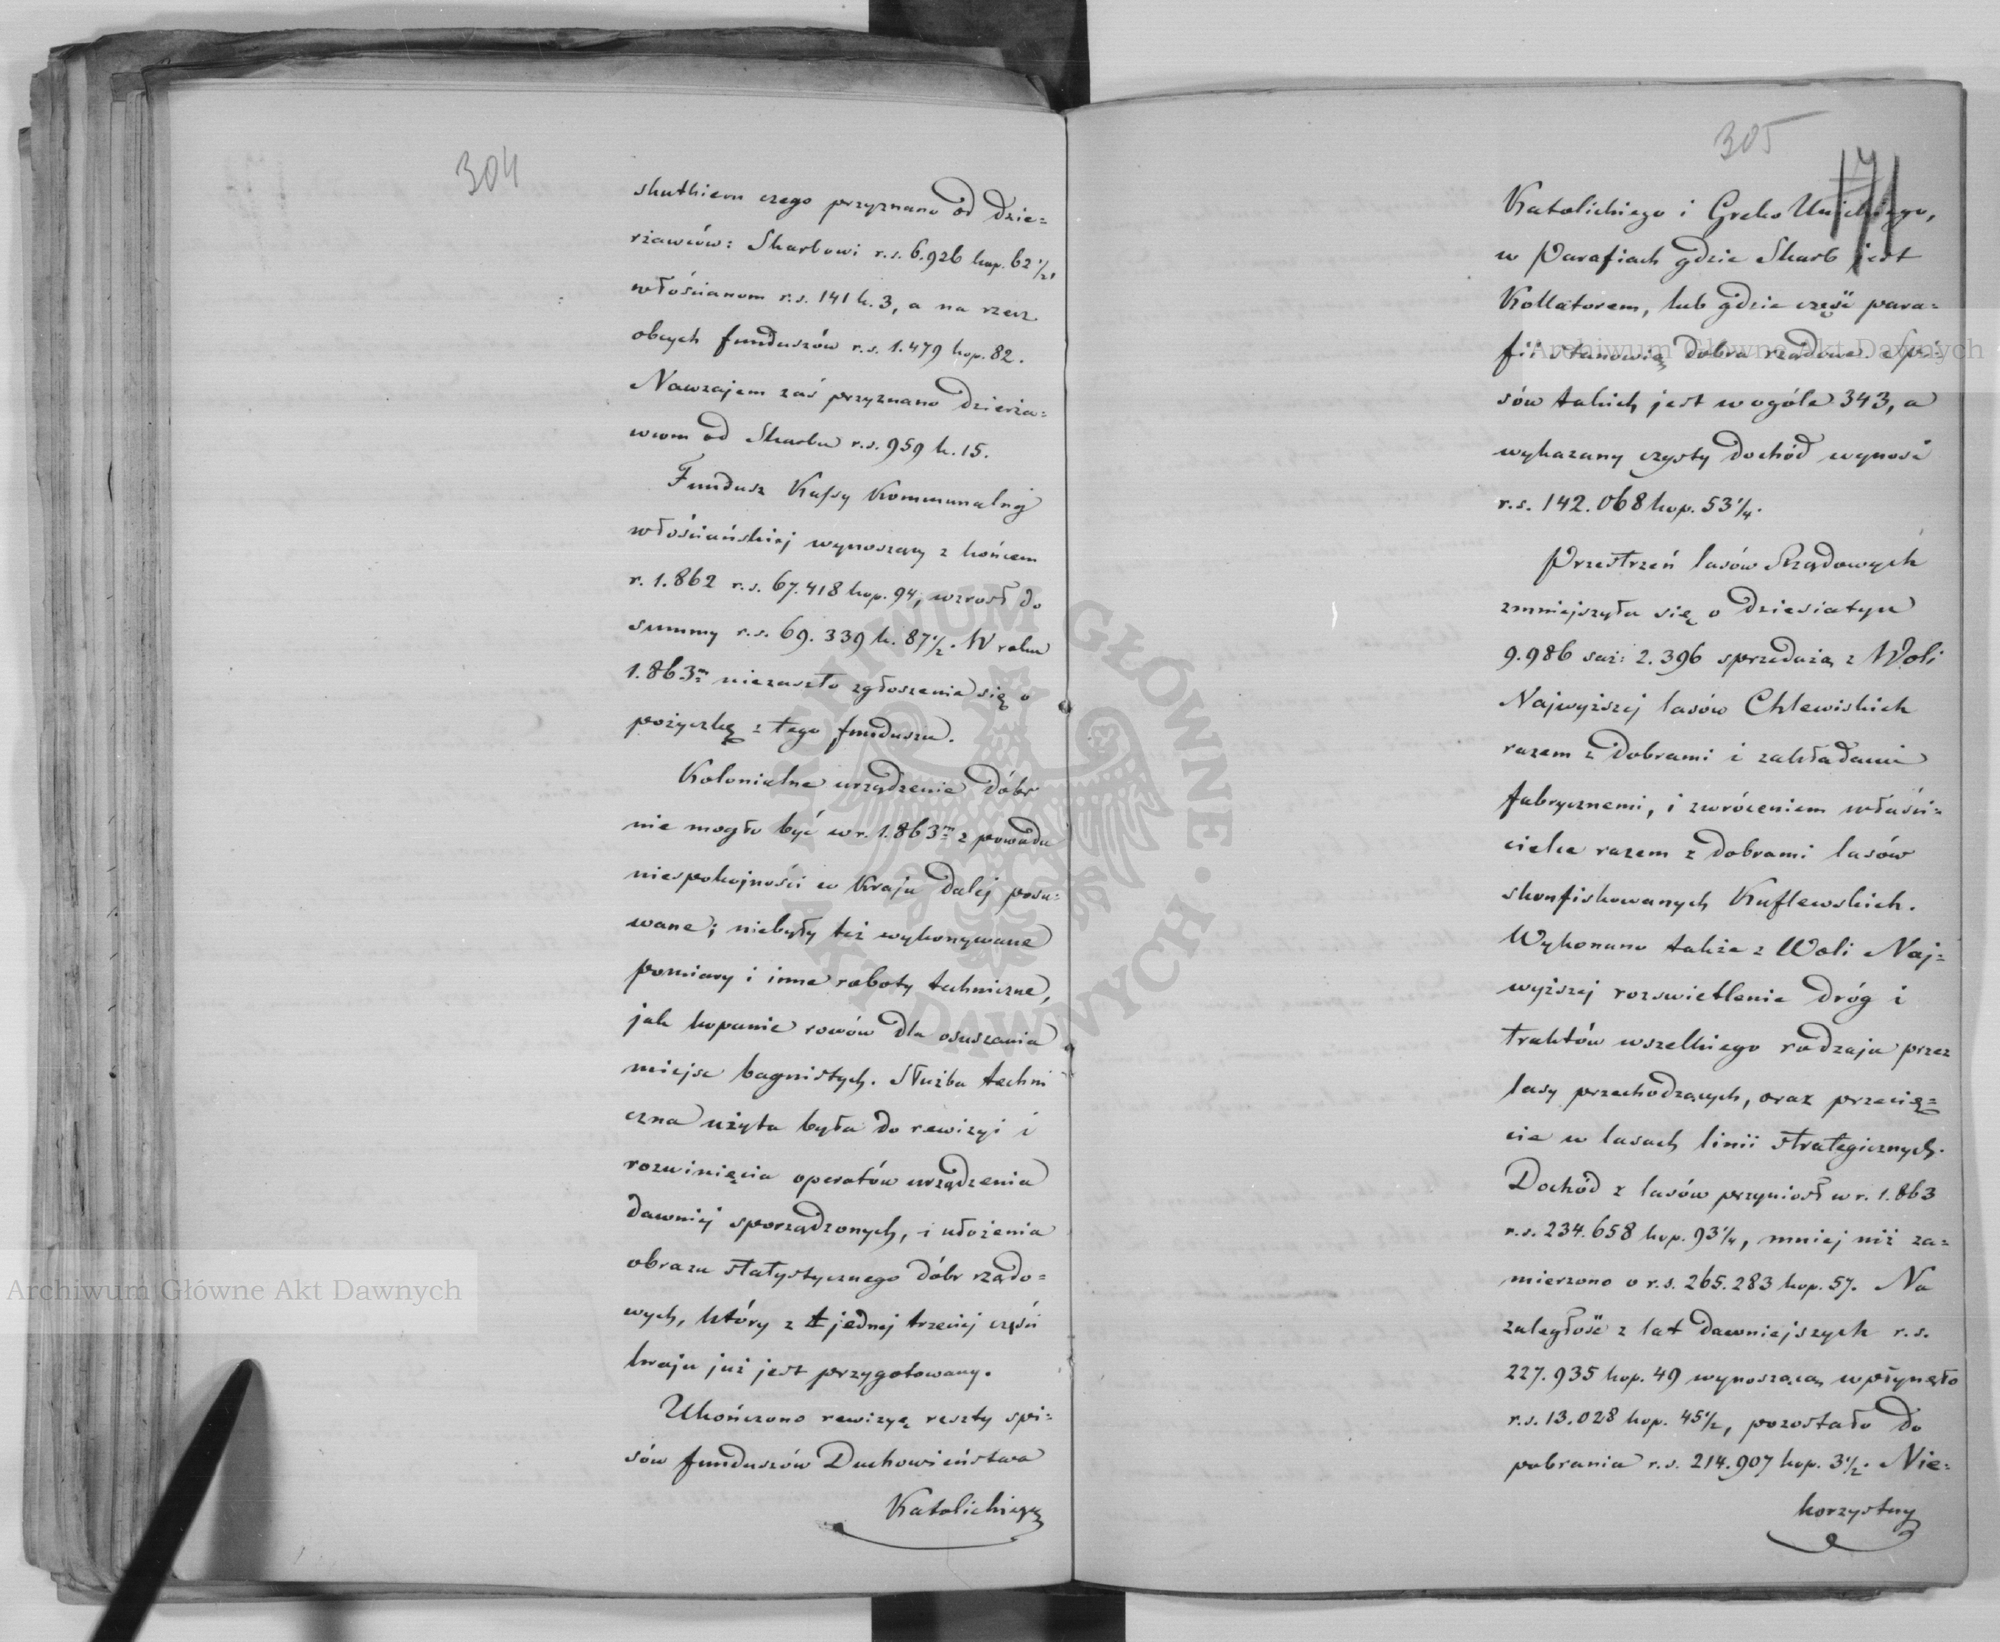 304
skutkiem czego przyznano od Dzie=
rżawców: Skarbowi r.s. 6.926 kop. 62 1/2,
włościanom r.s. 141 k. 3, a na rzecz
obcych funduszów r.s. 1.479 kop. 82.
Nawzajem zaś przyznano Dzierża=
wcom od Skarbu r.s. 959 k. 15.
Fundusz Kassy Kommunalnej
włościańskiej wynoszący z końcem
r. 1.862 r.s. 67.418 kop. 94, wzrosł do
summy r.s. 69.339 k. 87 1/2. W roku
1.863m niezaszło zgłoszenie się o
pożyczkę z tego funduszu.
Kolonialne urządzenie Dóbr
nie mogło być w r. 1.863m z powodu
niespokojności w Kraju dalej posu=
wane; niebyły też wykonywane
pomiary i inne roboty techniczne,
jak kopanie rowów dla osuszania
miejsc bagnistych. Służba techni
czna użyta była do rewizyi i
rozwinięcia operatów urządzenia
dawniej sporządzonych, i ułożenia
obrazu statystycznego dóbr rządo=
wych, który z jednej trzeciej części
kraju już jest przygotowany.
Ukończono rewizyę reszty spi=
sów funduszów Duchowieństwa
Katolickiego
305
171
Katolickiego i Greko Unickiego,
w Parafiach gdzie Skarb jest
Kollatorem, lub gdzie część para=
fii stanowią dobra rządowe. Spi=
sów takich jest wogóle 343, a
wykazany czysty dochód wynosi
r.s. 142.068 kop. 53 1/4.
Przestrzeń lasów Rządowych
zmniejszyła się o Dziesiatyn
9.986 saż: 2.396 sprzedażą z Woli
Najwyższej lasów Chlewiskich
razem z Dobrami i zakładami
fabrycznemi, i zwróceniem właści=
cielce razem z dobrami lasów
skonfiskowanych Kuflewskich.
Wykonano także z Woli Naj=
wyższej rozswietlenie dróg i
traktów wszelkiego rodzaju przez
lasy przechodzących, oraz przecię=
cie w lasach linii strategicznych.
Dochód z lasów przyniosł w r. 1.863
r.s. 234.658 kop. 93 1/4, mniej niż za=
mierzono o r.s. 265.283 kop. 57. Na
zaległość z lat dawniejszych r.s.
227.935 kop. 49 wynoszącą wpłynęło
r.s. 13.028 kop. 45 1/2, pozostało do
pobrania r.s. 214.907 kop. 3 1/2. Nie=
korzystny
Archiwum Główne Akt Dawnych
Archiwum Główne Akt Dawnych
ARCHIWUM GŁÓWNE AKT DAWNYCH